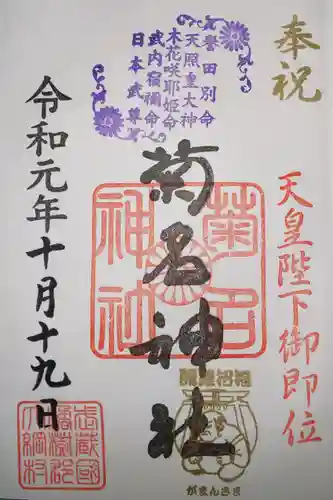 奉祝
天皇陛下御即位
誉田別命
天照皇大神
木花咲耶姫命
武内宿禰命
日本武尊
菊名神社
菊名
神社
がまんさま
令和元年十月十九日
武蔵国
橘樹郡
大綱村